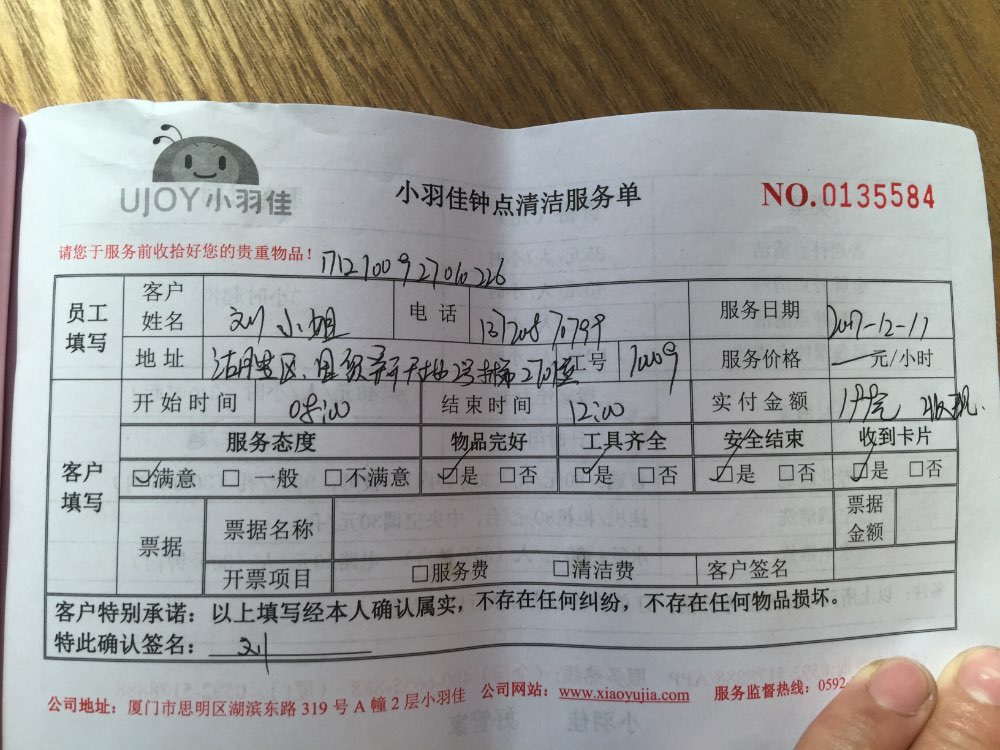 UJOY小羽佳
小羽佳钟点清洁服务单
NO.0135584
请您于服务前收拾好您的贵重物品！
员工填写 客户姓名 刘小姐 电话 服务日期 2017-12-17
地址 工号 71009 服务价格 一元/小时
客户填写 开始时间 08:00 结束时间 12:00 实付金额 199元
服务态度 物品完好 工具齐全 安全结束 收到卡片
☑满意 □一般 □不满意 ☑是 □否 ☑是 □否 ☑是 □否 ☑是 □否
票据 票据名称 票据金额
开票项目 □服务费 □清洁费 客户签名
客户特别承诺：以上填写经本人确认属实，不存在任何纠纷，不存在任何物品损坏。
特此确认签名：刘
公司地址：厦门市思明区湖滨东路 319 号 A 幢 2 层小羽佳 公司网站：www.xiaoyujia.com 服务监督热线：0592-